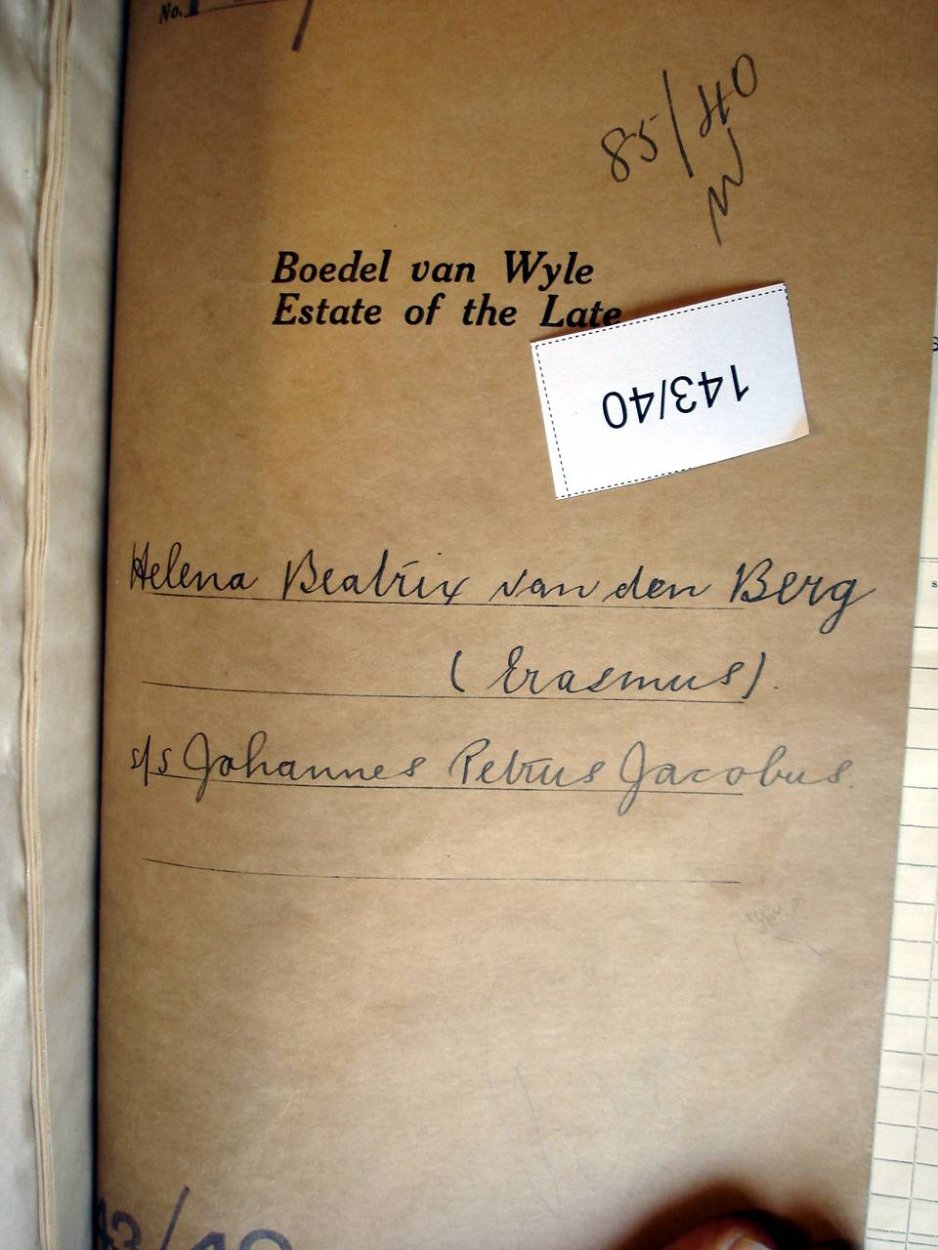 No.
85/40
Boedel van Wyle
Estate of the Late
143/40
Helena Beatrix van den Berg
(Erasmus).
s/s Johannes Petrus Jacobus.
43/40